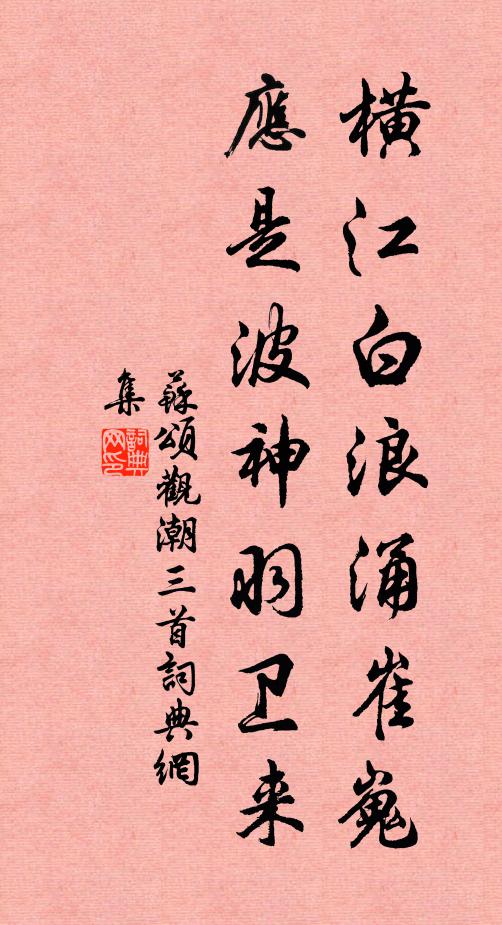 橫江白浪涌崔嵬
應是波神羽卫来
蘇頌觀潮三首詞典網
集
詞典
网印